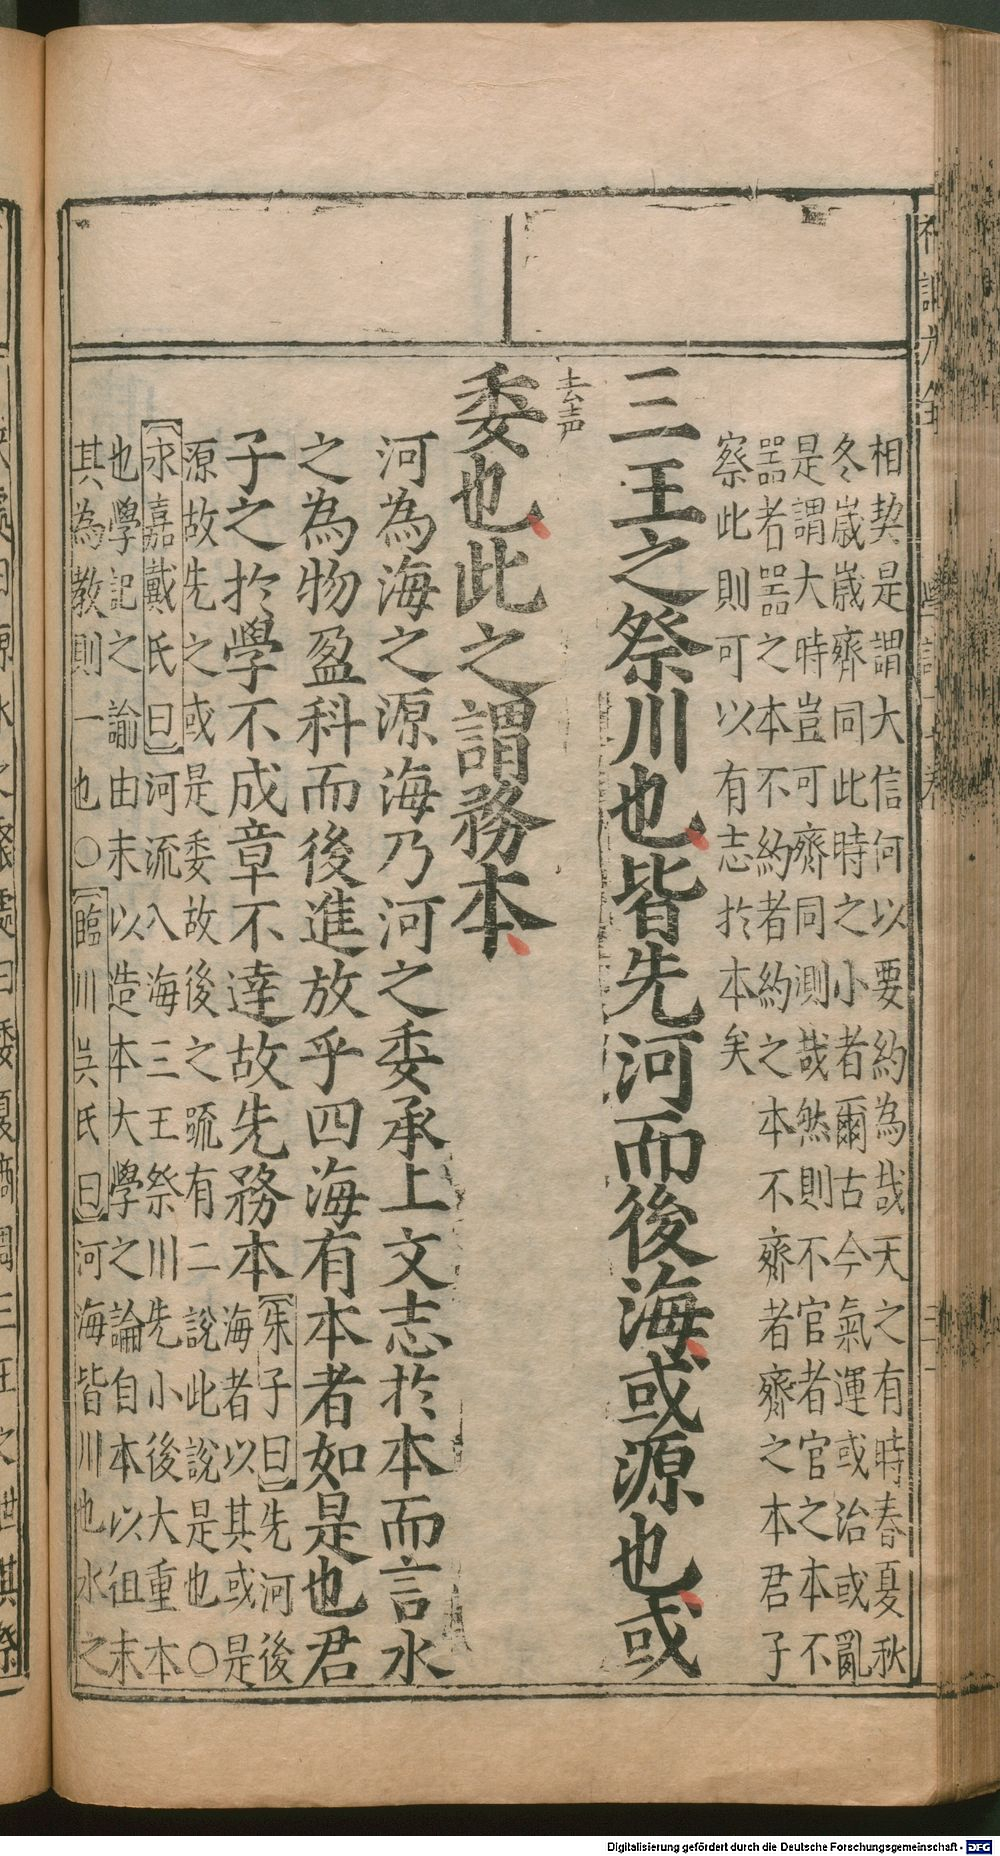 相契是謂大信何以要約為哉天之有時春夏秋
冬歲歲齊同此時之小者爾古今氣運或治或亂
是謂大時豈可齊同測哉然則不官者官之本不
噐者噐之本不約者約之本不齊者齊之本君子
察此則可以有志扵本矣
三王之祭川也皆先河而後海或源也或
去声
委也此之謂務本
河為海之源海乃河之委承上文志扵本而言水
之為物盈科而後進放乎四海有本者如是也君
子之扵學不成章不達故先務本朱子曰先河後
海者以其或是
源故先之或是委故後之䟽有二說此說是也○
永嘉戴氏曰河流入海三王祭川先小後大重本
也學記之論由末以造本大學之論自本以徂末
其為教則一也○臨川吳氏曰河海皆川也水之
Digitalisierung gefördert durch die Deutsche Forschungsgemeinschaft - DFG